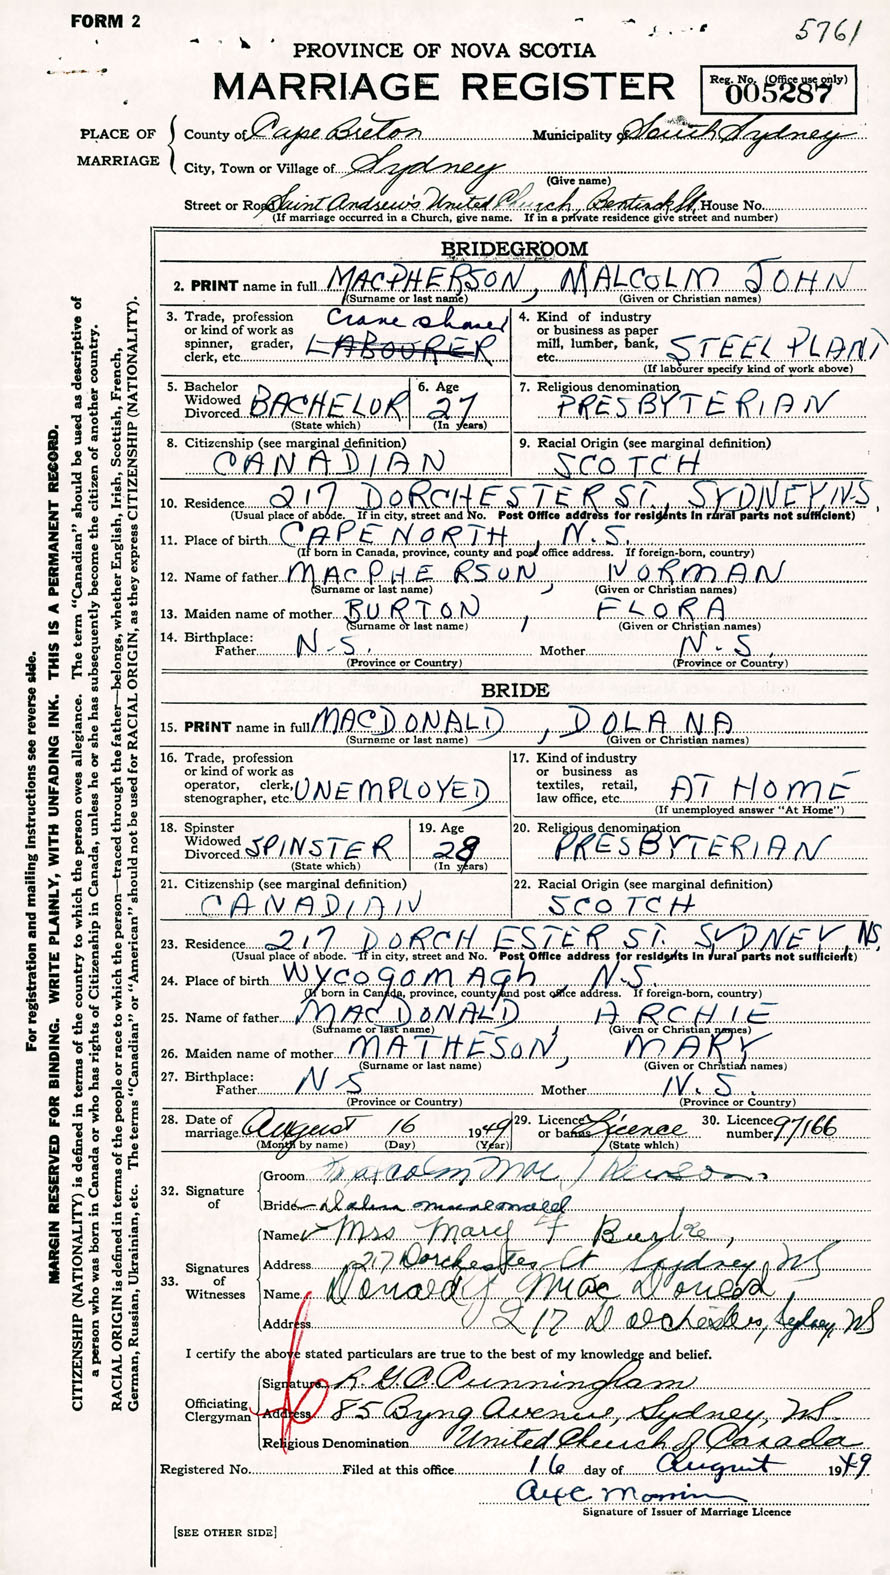 FORM 2
5761
PROVINCE OF NOVA SCOTIA
MARRIAGE REGISTER
Reg. No. (Office use only)
005287
PLACE OF MARRIAGE
County of Cape Breton Municipality of South Sydney
City, Town or Village of Sydney
(Give name)
Street or Road Saint Andrew's United Church, Bentinck St, House No.
(If marriage occurred in a Church, give name. If in a private residence give street and number)
BRIDEGROOM
2. PRINT name in full MACPHERSON, MALCOLM JOHN
(Surname or last name) (Given or Christian names)
3. Trade, profession or kind of work as spinner, grader, clerk, etc. Crane LABOURER
4. Kind of industry or business as paper mill, lumber, bank, etc. STEEL PLANT
(If labourer specify kind of work above)
5. Bachelor Widowed Divorced BACHELOR
(State which)
6. Age 27
(In years)
7. Religious denomination PRESBYTERIAN
8. Citizenship (see marginal definition) CANADIAN
9. Racial Origin (see marginal definition) SCOTCH
10. Residence 217 DORCHESTER ST. SYDNEY, N.S
(Usual place of abode. If in city, street and No. Post Office address for residents in rural parts not sufficient)
11. Place of birth CAPE NORTH, N.S.
(If born in Canada, province, county and post office address. If foreign-born, country)
12. Name of father MACPHERSON, NORMAN
(Surname or last name) (Given or Christian names)
13. Maiden name of mother BURTON, FLORA
(Surname or last name) (Given or Christian names)
14. Birthplace:
Father N.S. Mother N.S.
(Province or Country) (Province or Country)
BRIDE
15. PRINT name in full MACDONALD, DOLANA
(Surname or last name) (Given or Christian names)
16. Trade, profession or kind of work as operator, clerk, stenographer, etc. UNEMPLOYED
17. Kind of industry or business as textiles, retail, law office, etc. AT HOME
(If unemployed answer "At Home")
18. Spinster Widowed Divorced SPINSTER
(State which)
19. Age 28
(In years)
20. Religious denomination PRESBYTERIAN
21. Citizenship (see marginal definition) CANADIAN
22. Racial Origin (see marginal definition) SCOTCH
23. Residence 217 DORCHESTER ST. SYDNEY, NS,
(Usual place of abode. If in city, street and No. Post Office address for residents in rural parts not sufficient)
24. Place of birth WYCOGOMAGH, N.S.
(If born in Canada, province, county and post office address. If foreign-born, country)
25. Name of father MACDONALD, ARCHIE
(Surname or last name) (Given or Christian names)
26. Maiden name of mother MATHESON, MARY
(Surname or last name) (Given or Christian names)
27. Birthplace:
Father N S Mother N.S.
(Province or Country) (Province or Country)
28. Date of marriage August 16 1949
(Month by name) (Day) (Year)
29. Licence or banns Licence
(State which)
30. Licence number 97166
32. Signature of
Groom Malcolm MacPherson
Bride Dolina macdonald
33. Signatures of Witnesses
Name Mrs Mary F Burke,
Address 217 Dorchester St Sydney, NS
Name Donald J MacDonald
Address 217 Dorchester, Sydney, NS
I certify the above stated particulars are true to the best of my knowledge and belief.
Officiating Clergyman
Signature R. G. C. Cunningham
Address 85 Byng Avenue, Sydney, N.S.
Religious Denomination United Church of Canada
Registered No. Filed at this office 16 day of August 1949
Signature of Issuer of Marriage Licence
[SEE OTHER SIDE]
For registration and mailing instructions see reverse side.
MARGIN RESERVED FOR BINDING. WRITE PLAINLY, WITH UNFADING INK. THIS IS A PERMANENT RECORD.
CITIZENSHIP (NATIONALITY) is defined in terms of the country to which the person owes allegiance. The term "Canadian" should be used as descriptive of
a person who was born in Canada or who has rights of Citizenship in Canada, unless he or she has subsequently become the citizen of another country.
RACIAL ORIGIN is defined in terms of the people or race to which the person—traced through the father—belongs, whether English, Irish, Scottish, French,
German, Russian, Ukrainian, etc. The terms "Canadian" or "American" should not be used for RACIAL ORIGIN, as they express CITIZENSHIP (NATIONALITY).